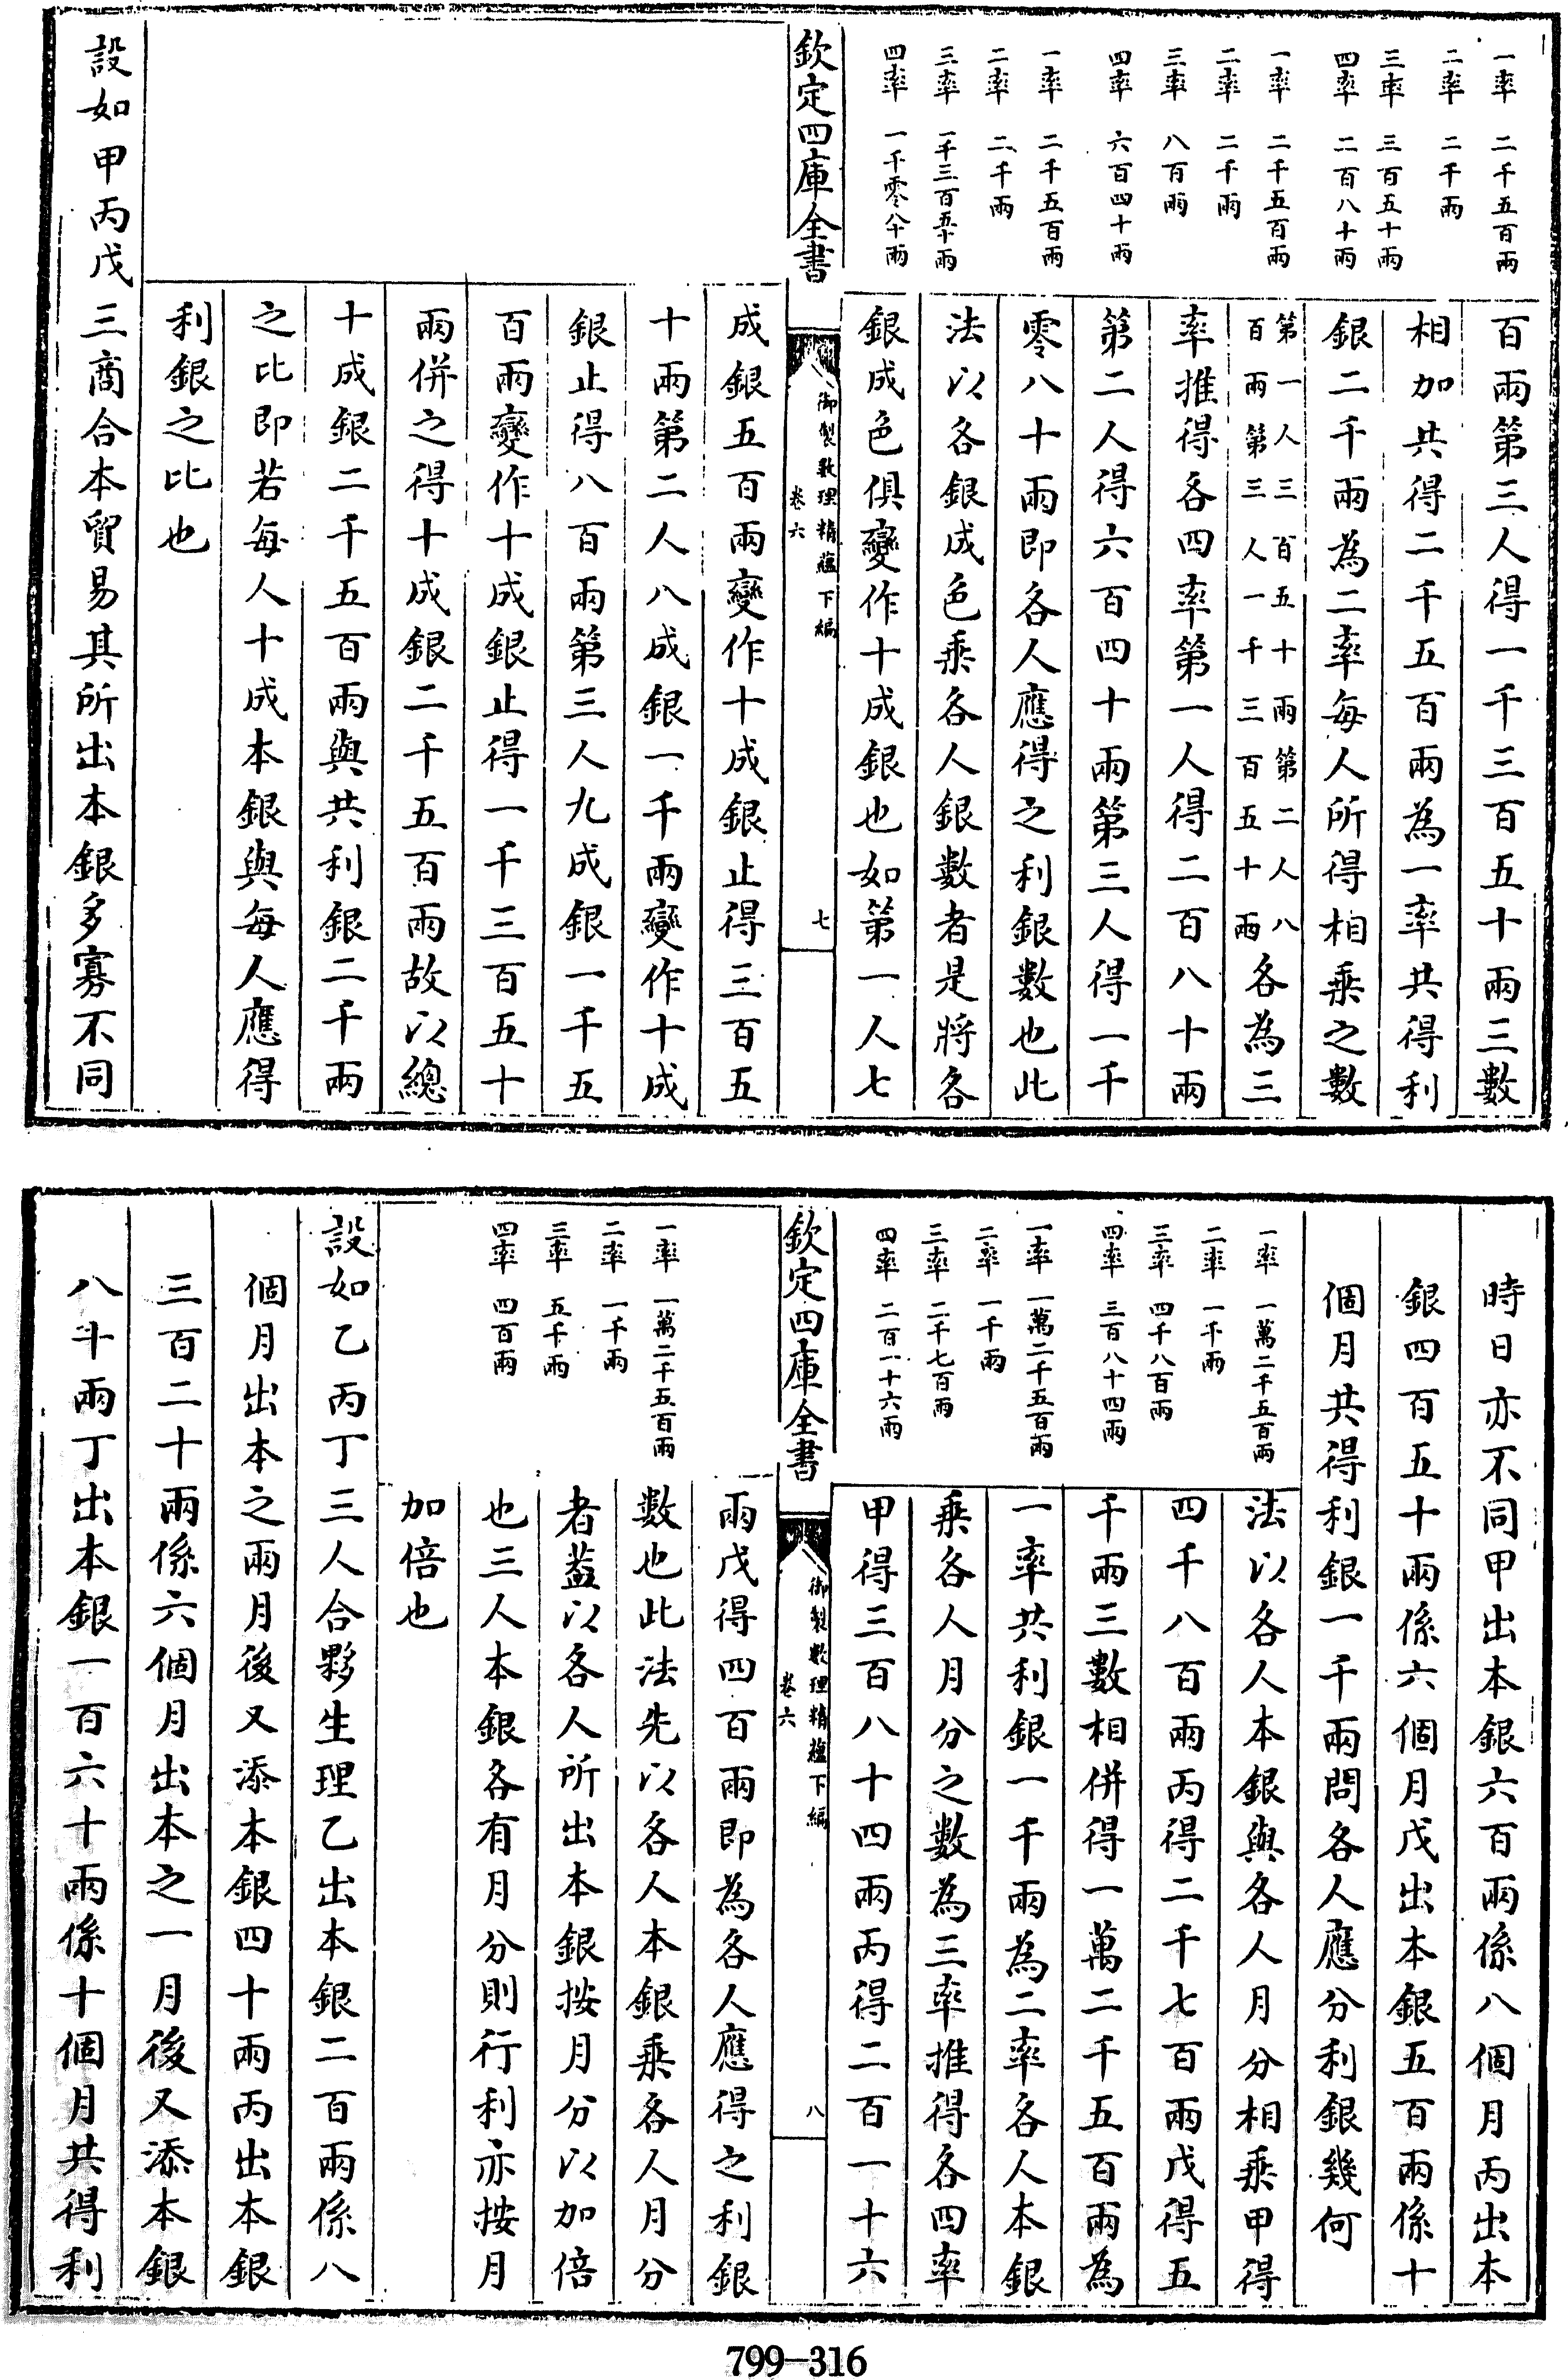 一率　二千五百兩
二率　二千兩
三率　三百五十兩
四率　二百八十兩
一率　二千五百兩
二率　二千兩
三率　八百兩
四率　六百四十兩
一率　二千五百兩
二率　二千兩
三率　一千三百五十兩
四率　一千零八十兩
百兩第三人得一千三百五十兩三數
相加共得二千五百兩為一率共得利
銀二千兩為二率每人所得相乘之數
第一人三百五十兩第二人八
百兩第三人一千三百五十兩各為三
率推得各四率第一人得二百八十兩
第二人得六百四十兩第三人得一千
零八十兩即各人應得之利銀數也此
法以各銀成色乘各人銀數者是將各
銀成色俱變作十成銀也如第一人七
欽定四庫全書
御製數理精蘊下編
卷六
七
成銀五百兩變作十成銀止得三百五
十兩第二人八成銀一千兩變作十成
銀止得八百兩第三人九成銀一千五
百兩變作十成銀止得一千三百五十
兩併之得十成銀二千五百兩故以總
十成銀二千五百兩與共利銀二千兩
之比即若每人十成本銀與每人應得
利銀之比也
設如甲丙戊三商合本貿易其所出本銀多寡不同
時日亦不同甲出本銀六百兩係八個月丙出本
銀四百五十兩係六個月戊出本銀五百兩係十
個月共得利銀一千兩問各人應分利銀幾何
一率　一萬二千五百兩
二率　一千兩
三率　四千八百兩
四率　三百八十四兩
一率　一萬二千五百兩
二率　一千兩
三率　二千七百兩
四率　二百一十六兩
法以各人本銀與各人月分相乘甲得
四千八百兩丙得二千七百兩戊得五
千兩三數相併得一萬二千五百兩為
一率共利銀一千兩為二率各人本銀
乘各人月分之數為三率推得各四率
甲得三百八十四兩丙得二百一十六
欽定四庫全書
御製數理精蘊下編
卷六
八
一率　一萬二千五百兩
二率　一千兩
三率　五千兩
四率　四百兩
兩戊得四百兩即為各人應得之利銀
數也此法先以各人本銀乘各人月分
者葢以各人所出本銀按月分以加倍
也三人本銀各有月分則行利亦按月
加倍也
設如乙丙丁三人合夥生理乙出本銀二百兩係八
個月出本之兩月後又添本銀四十兩丙出本銀
三百二十兩係六個月出本之一月後又添本銀
八十兩丁出本銀一百六十兩係十個月共得利
799-316